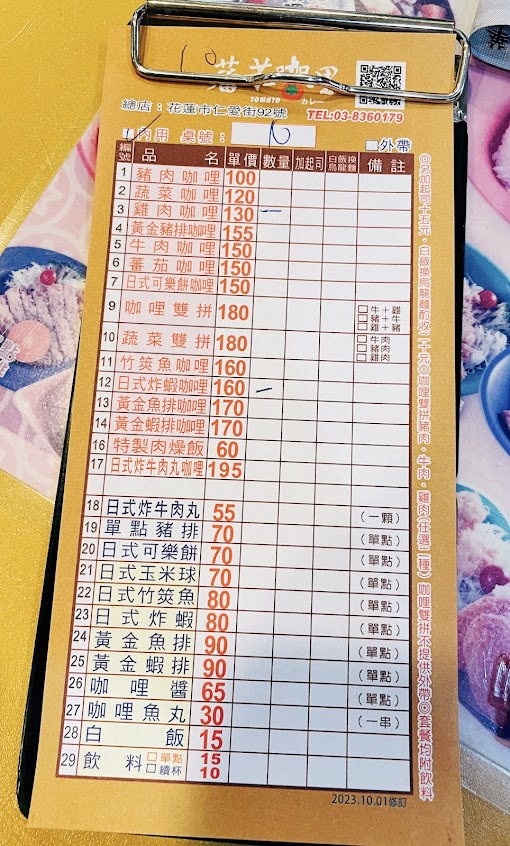 蕃茄咖哩
TOMATO カレー
總店：花蓮市仁愛街92號 TEL:03-8360179
內用 桌號： 外帶
編號 品名 單價 數量 加起司 白飯換烏龍麵 備註
1 豬肉咖哩 100
2 蔬菜咖哩 120
3 雞肉咖哩 130 一
4 黃金豬排咖哩 155
5 牛肉咖哩 150
6 蕃茄咖哩 150
7 日式可樂餅咖哩 150
9 咖哩雙拼 180 牛＋雞 豬＋牛 雞＋豬
10 蔬菜雙拼 180 牛肉 豬肉 雞肉
11 竹筴魚咖哩 160
12 日式炸蝦咖哩 160 一
13 黃金魚排咖哩 170
14 黃金蝦排咖哩 170
16 特製肉燥飯 60
17 日式炸牛肉丸咖哩 195
18 日式炸牛肉丸 55 （一顆）
19 單點豬排 70 （單點）
20 日式可樂餅 70 （單點）
21 日式玉米球 70 （單點）
22 日式竹筴魚 80 （單點）
23 日式炸蝦 80 （單點）
24 黃金魚排 90 （單點）
25 黃金蝦排 90 （單點）
26 咖哩醬 65 （單點）
27 咖哩魚丸 30 （一串）
28 白飯 15
29 飲料 單點 15 續杯 10
2023.10.01修訂
◎另加起司十五元．白飯換烏龍麵酌收二十元◎咖哩雙拼豬肉．牛肉．雞肉（任選二種）咖哩雙拼不提供外帶◎套餐均附飲料